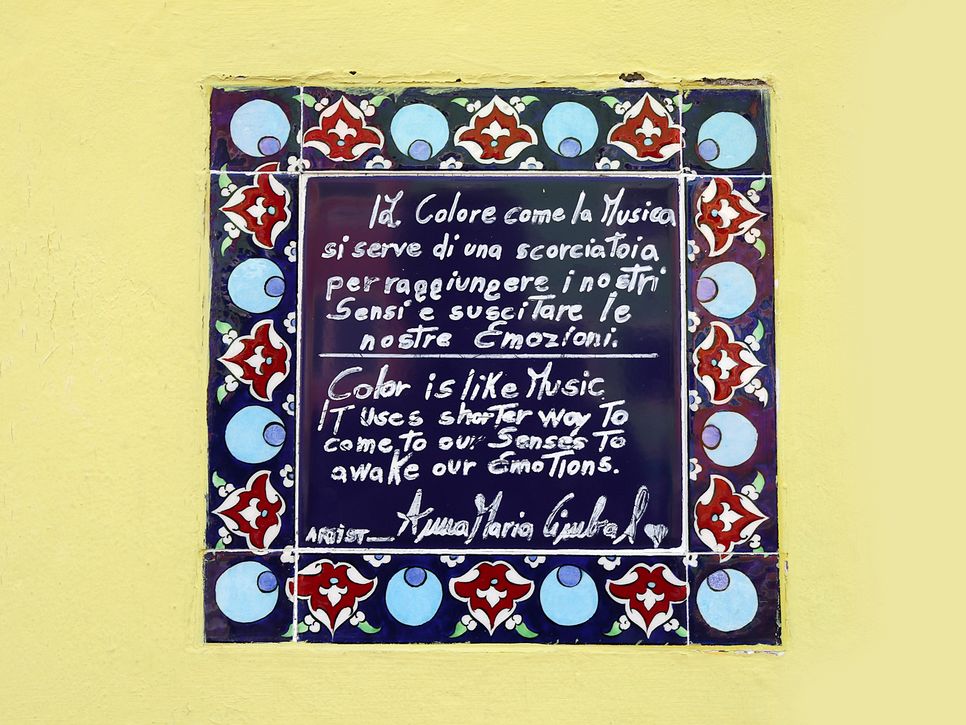 Il Colore come la Musica
si serve di una scorciatoia
per raggiungere i nostri
Sensi e suscitare le
nostre Emozioni.
Color is like Music
IT Uses shorter way To
come to our Senses To
awake our EmoTions.
ARTIST_ AnnaMaria